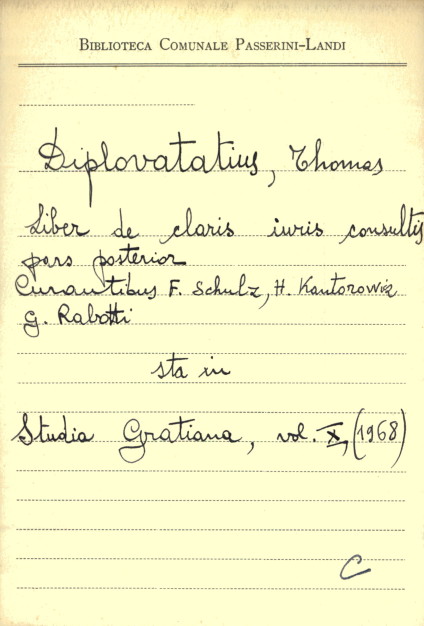 BIBLIOTECA COMUNALE PASSERINI-LANDI
Diplovatatius, Thomas
Liber de claris iuris consultis
pars posterior
Curantibus F. Schulz, H. Kantorowicz
G. Rabotti
sta in
Studia Gratiana, vol. X, (1968)
C